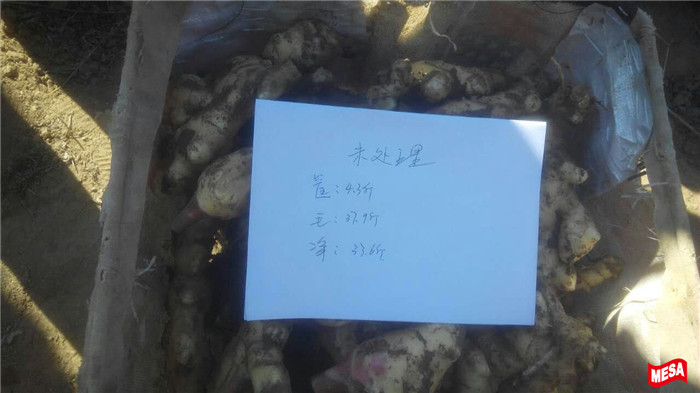 未处理
筐:4.3斤
毛:37.9斤
净:33.6斤
MESA